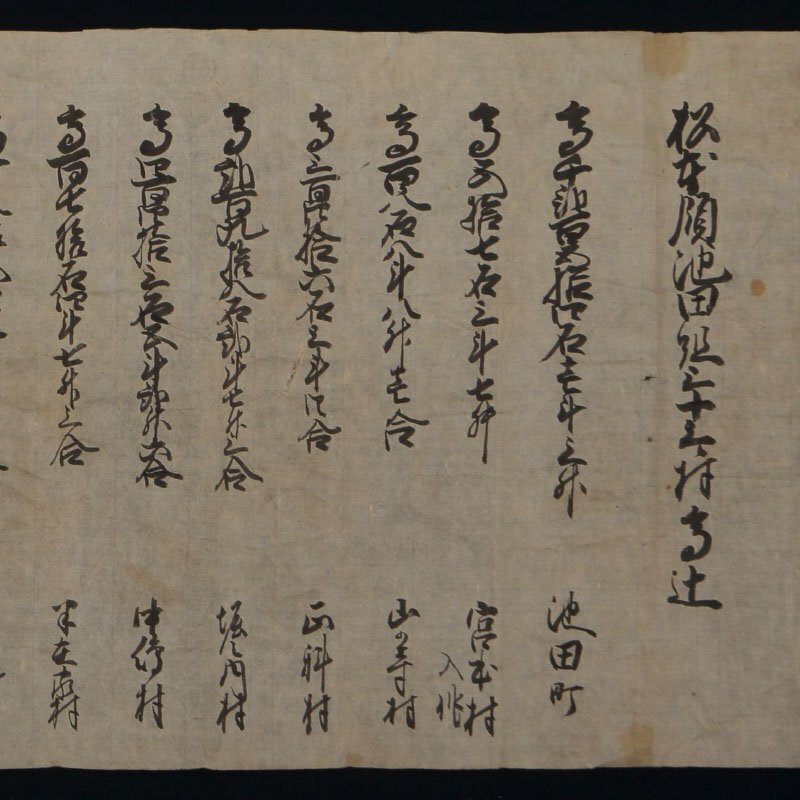 松本領池田組三十三ケ村高辻
高千弐百五拾四石壱斗三升
池田町
高五拾七石三斗七升
宮本村
入作
高百八石八斗八升壱合
山の寺村
高三百四拾六石三斗四合
正科村
高弐百九拾八石弐斗七升三合
堀之内村
高四百四拾三石五斗弐升六合
中信村
高百七拾石四斗七升三合
半在家村